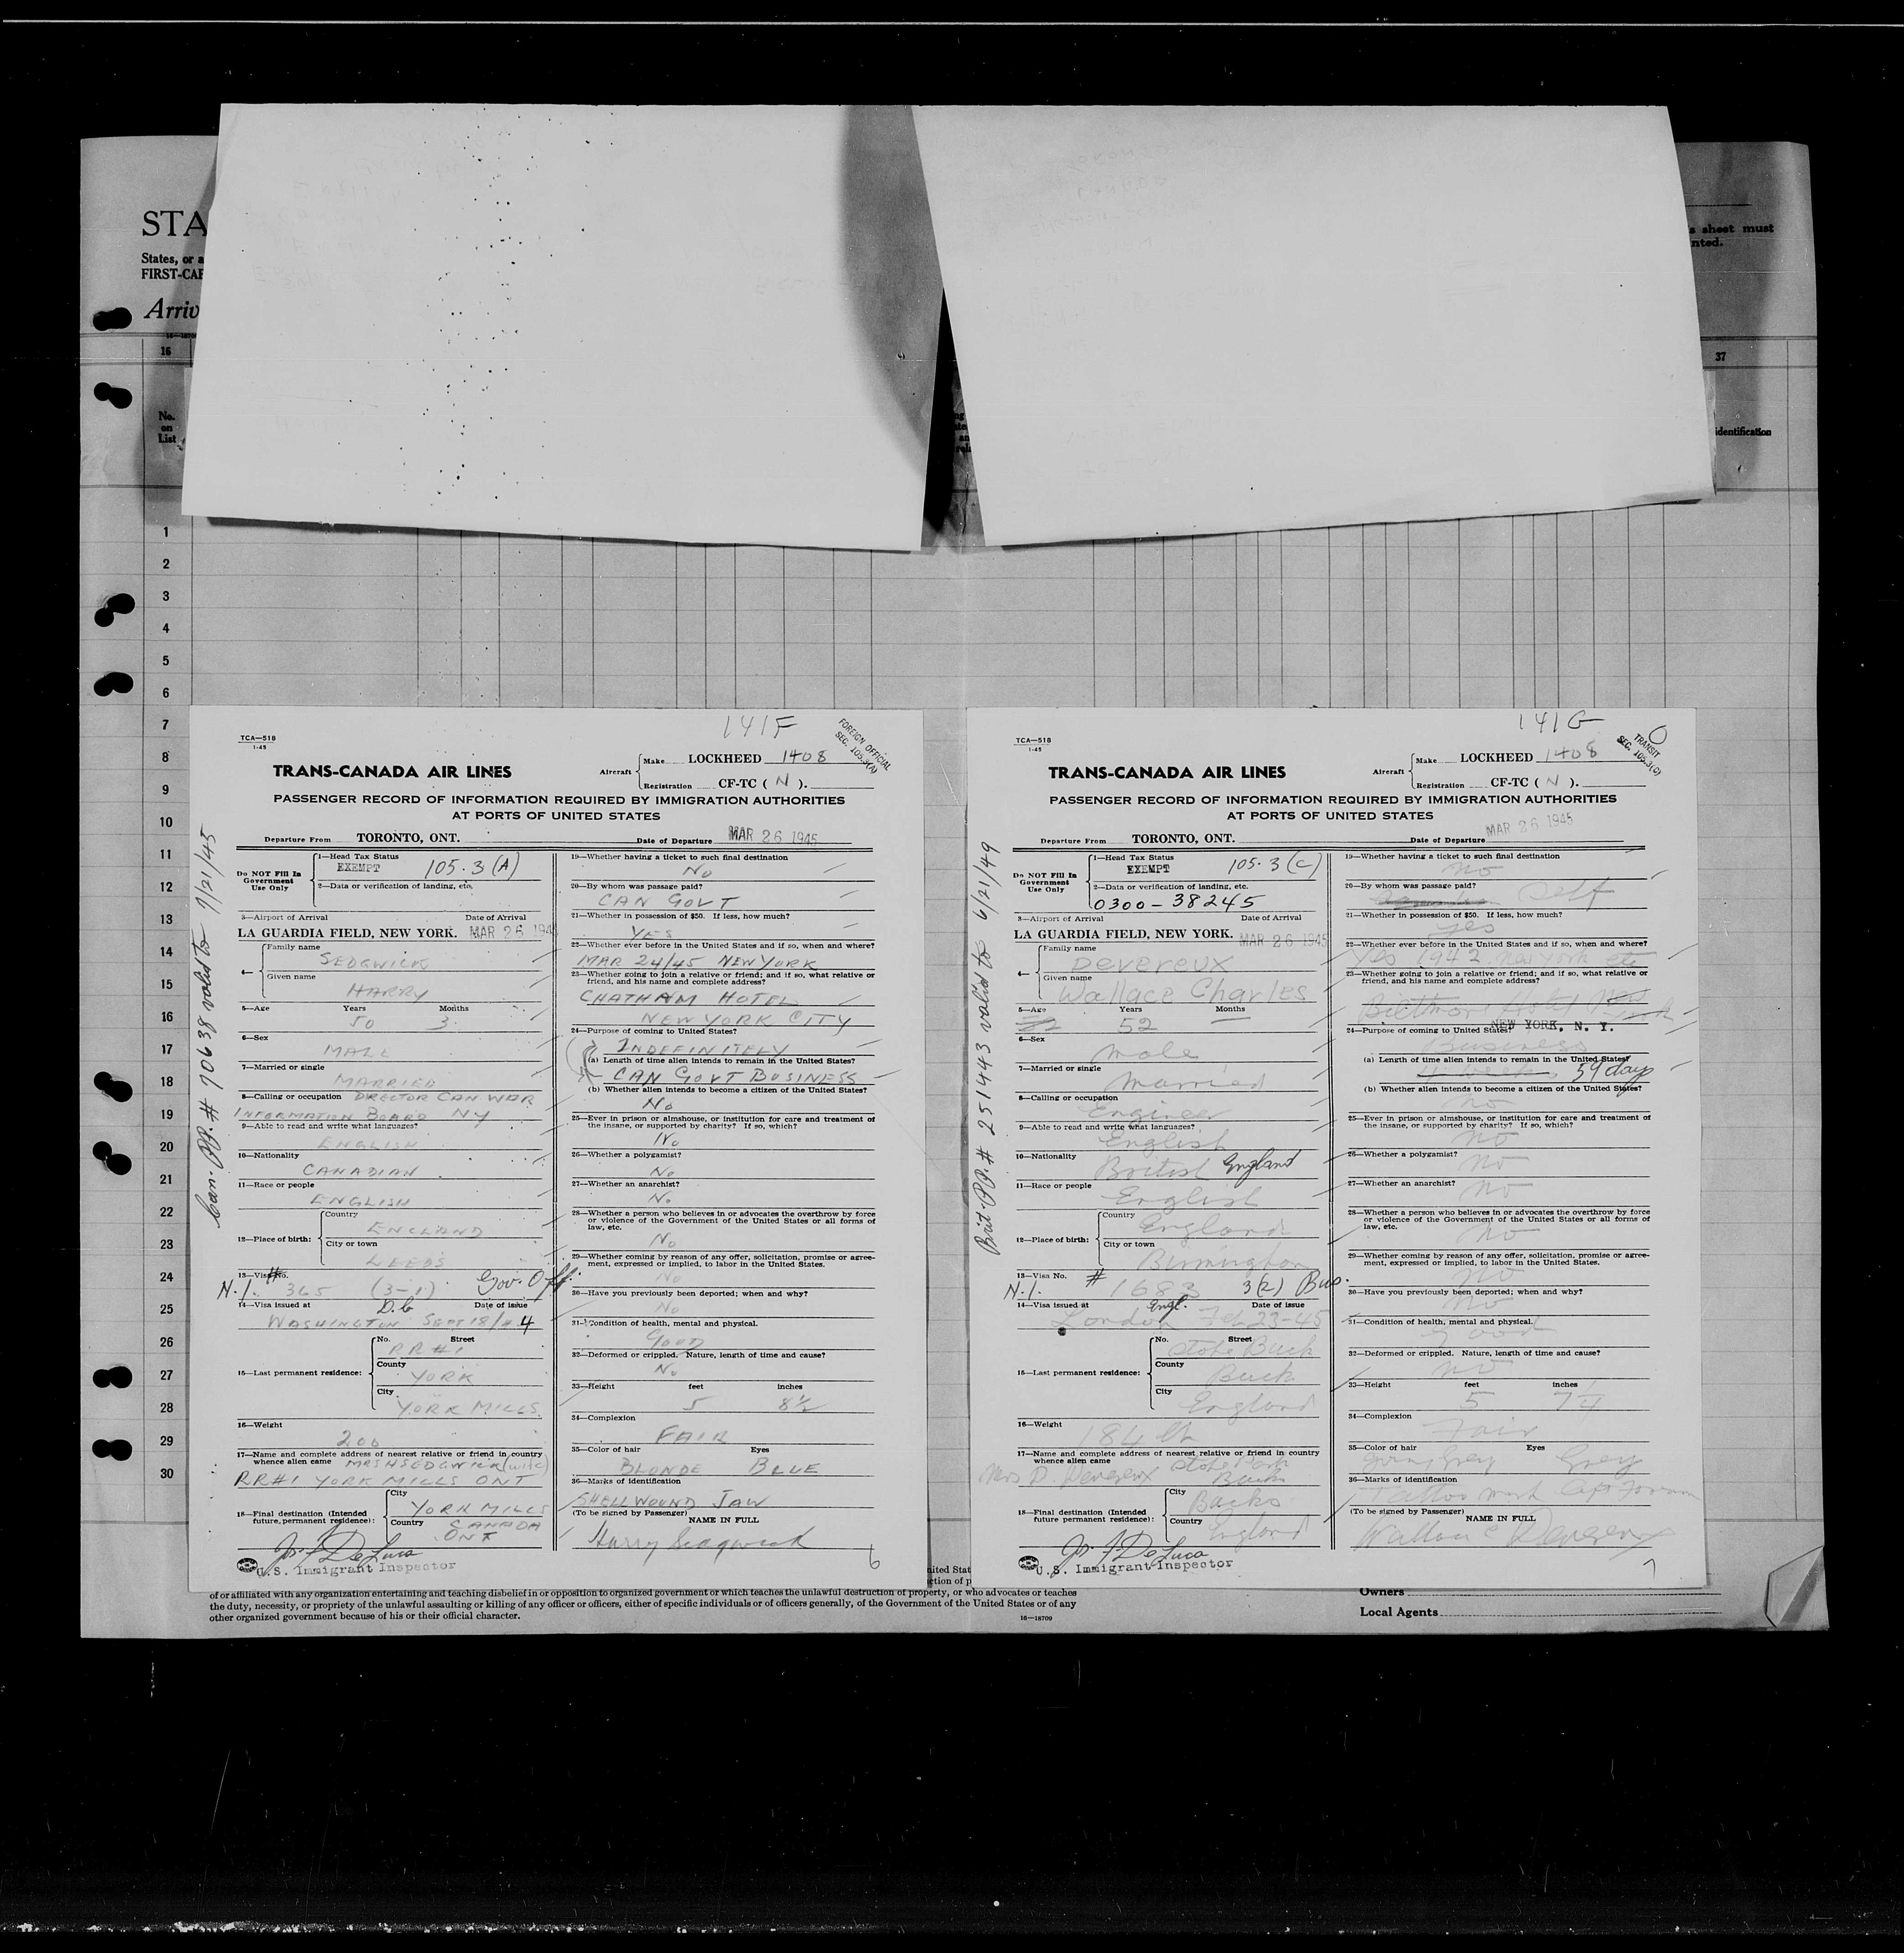 STA
States, or a
FIRST-CAB
Arriv
16
No.
on
List
s sheet must
nted.
37
identification
1
2
3
4
5
6
7
8
9
10
11
12
13
14
15
16
17
18
19
20
21
22
23
24
25
26
27
28
29
30
141F
FOREIGN OFFICIAL
SEC. 105.3(A)
TCA—518
1-45
TRANS-CANADA AIR LINES
Aircraft
Make LOCKHEED 1408
Registration CF-TC ( N ).
PASSENGER RECORD OF INFORMATION REQUIRED BY IMMIGRATION AUTHORITIES
AT PORTS OF UNITED STATES
Departure From TORONTO, ONT. Date of Departure MAR 26 1945
Can. PP. # 70638 valid to 7/21/45
Do NOT Fill In
Government
Use Only
1—Head Tax Status
EXEMPT 105.3 (A)
2—Data or verification of landing, etc.
3—Airport of Arrival Date of Arrival
LA GUARDIA FIELD, NEW YORK. MAR 26 1945
4— Family name
SEDGWICK
Given name
HARRY
5—Age Years Months
50 3
6—Sex
MALE
7—Married or single
MARRIED
8—Calling or occupation DIRECTOR CAN WAR
INFORMATION BOARD NY
9—Able to read and write what languages?
ENGLISH
10—Nationality
CANADIAN
11—Race or people
ENGLISH
12—Place of birth:
Country
ENGLAND
City or town
LEEDS
13—Visa No. # Gov. Off.
N.I. 365 (3-1)
14—Visa issued at D.C Date of issue
WASHINGTON SEPT 18/44
15—Last permanent residence:
No. Street
RR #1
County
YORK
City
YORK MILLS
16—Weight
200
17—Name and complete address of nearest relative or friend in country
whence alien came MRS H SEDGWICK (wife)
RR#1 YORK MILLS ONT
18—Final destination (Intended
future, permanent residence):
City
YORK MILLS
Country CANADA
ONT
Jos. F. De Luca
U.S. Immigrant Inspector
19—Whether having a ticket to such final destination
No
20—By whom was passage paid?
CAN GOVT
21—Whether in possession of $50. If less, how much?
YES
22—Whether ever before in the United States and if so, when and where?
MAR 24/45 NEW YORK
23—Whether going to join a relative or friend; and if so, what relative or
friend, and his name and complete address?
CHATHAM HOTEL
NEW YORK CITY
24—Purpose of coming to United States?
INDEFINITELY
(a) Length of time alien intends to remain in the United States?
CAN GOVT BUSINESS
(b) Whether alien intends to become a citizen of the United States?
No
25—Ever in prison or almshouse, or institution for care and treatment of
the insane, or supported by charity? If so, which?
No
26—Whether a polygamist?
No
27—Whether an anarchist?
No
28—Whether a person who believes in or advocates the overthrow by force
or violence of the Government of the United States or all forms of
law, etc.
No
29—Whether coming by reason of any offer, solicitation, promise or agree-
ment, expressed or implied, to labor in the United States.
No
30—Have you previously been deported; when and why?
No
31—Condition of health, mental and physical.
GOOD
32—Deformed or crippled. Nature, length of time and cause?
No
33—Height feet inches
5 8½
34—Complexion
FAIR
35—Color of hair Eyes
BLONDE BLUE
36—Marks of identification
SHELL WOUND JAW
(To be signed by Passenger) NAME IN FULL
Harry Sedgwick
6
141G
TRANSIT
SEC. 105.3(C)
TCA—518
1-45
TRANS-CANADA AIR LINES
Aircraft
Make LOCKHEED 1408
Registration CF-TC ( N ).
PASSENGER RECORD OF INFORMATION REQUIRED BY IMMIGRATION AUTHORITIES
AT PORTS OF UNITED STATES
Departure From TORONTO, ONT. Date of Departure MAR 26 1945
Brit. PP. # 251443 valid to 6/21/49
Do NOT Fill In
Government
Use Only
1—Head Tax Status
EXEMPT 105.3 (C)
2—Data or verification of landing, etc.
0300-38245
3—Airport of Arrival Date of Arrival
LA GUARDIA FIELD, NEW YORK. MAR 26 1945
4— Family name
Devereux
Given name
Wallace Charles
5—Age Years Months
52 —
6—Sex
male
7—Married or single
Married
8—Calling or occupation
Engineer
9—Able to read and write what languages?
English
10—Nationality
British England
11—Race or people
English
12—Place of birth:
Country
England
City or town
Birmingham
13—Visa No. #
N.I. 1683 3(2) Bus.
14—Visa issued at Engl. Date of issue
London Feb 23-45
15—Last permanent residence:
No. Street
Stoke Buck
County
Buck
City
England
16—Weight
184 lb
17—Name and complete address of nearest relative or friend in country
whence alien came Stoke Park
Mrs D. Devereux Bucks
18—Final destination (Intended
future permanent residence):
City
Bucks
Country
England
Jos. F. De Luca
U.S. Immigrant Inspector
19—Whether having a ticket to such final destination
no
20—By whom was passage paid?
Self
21—Whether in possession of $50. If less, how much?
yes
22—Whether ever before in the United States and if so, when and where?
Yes 1942 New York etc
23—Whether going to join a relative or friend; and if so, what relative or
friend, and his name and complete address?
Biltmore Hotel New York
24—Purpose of coming to United States? NEW YORK, N. Y.
Business
(a) Length of time alien intends to remain in the United States?
4 weeks 59 days
(b) Whether alien intends to become a citizen of the United States?
no
25—Ever in prison or almshouse, or institution for care and treatment of
the insane, or supported by charity? If so, which?
no
26—Whether a polygamist?
no
27—Whether an anarchist?
no
28—Whether a person who believes in or advocates the overthrow by force
or violence of the Government of the United States or all forms of
law, etc.
no
29—Whether coming by reason of any offer, solicitation, promise or agree-
ment, expressed or implied, to labor in the United States.
no
30—Have you previously been deported; when and why?
no
31—Condition of health, mental and physical.
good
32—Deformed or crippled. Nature, length of time and cause?
no
33—Height feet inches
5 7¼
34—Complexion
Fair
35—Color of hair Eyes
Grey Grey
36—Marks of identification
Tattoo mark
(To be signed by Passenger) NAME IN FULL
Wallace C Devereux
7
of or affiliated with any organization entertaining and teaching disbelief in or opposition to organized government or which teaches the unlawful destruction of property, or who advocates or teaches
the duty, necessity, or propriety of the unlawful assaulting or killing of any officer or officers, either of specific individuals or of officers generally, of the Government of the United States or of any
other organized government because of his or their official character.
16—18709
Owners
Local Agents